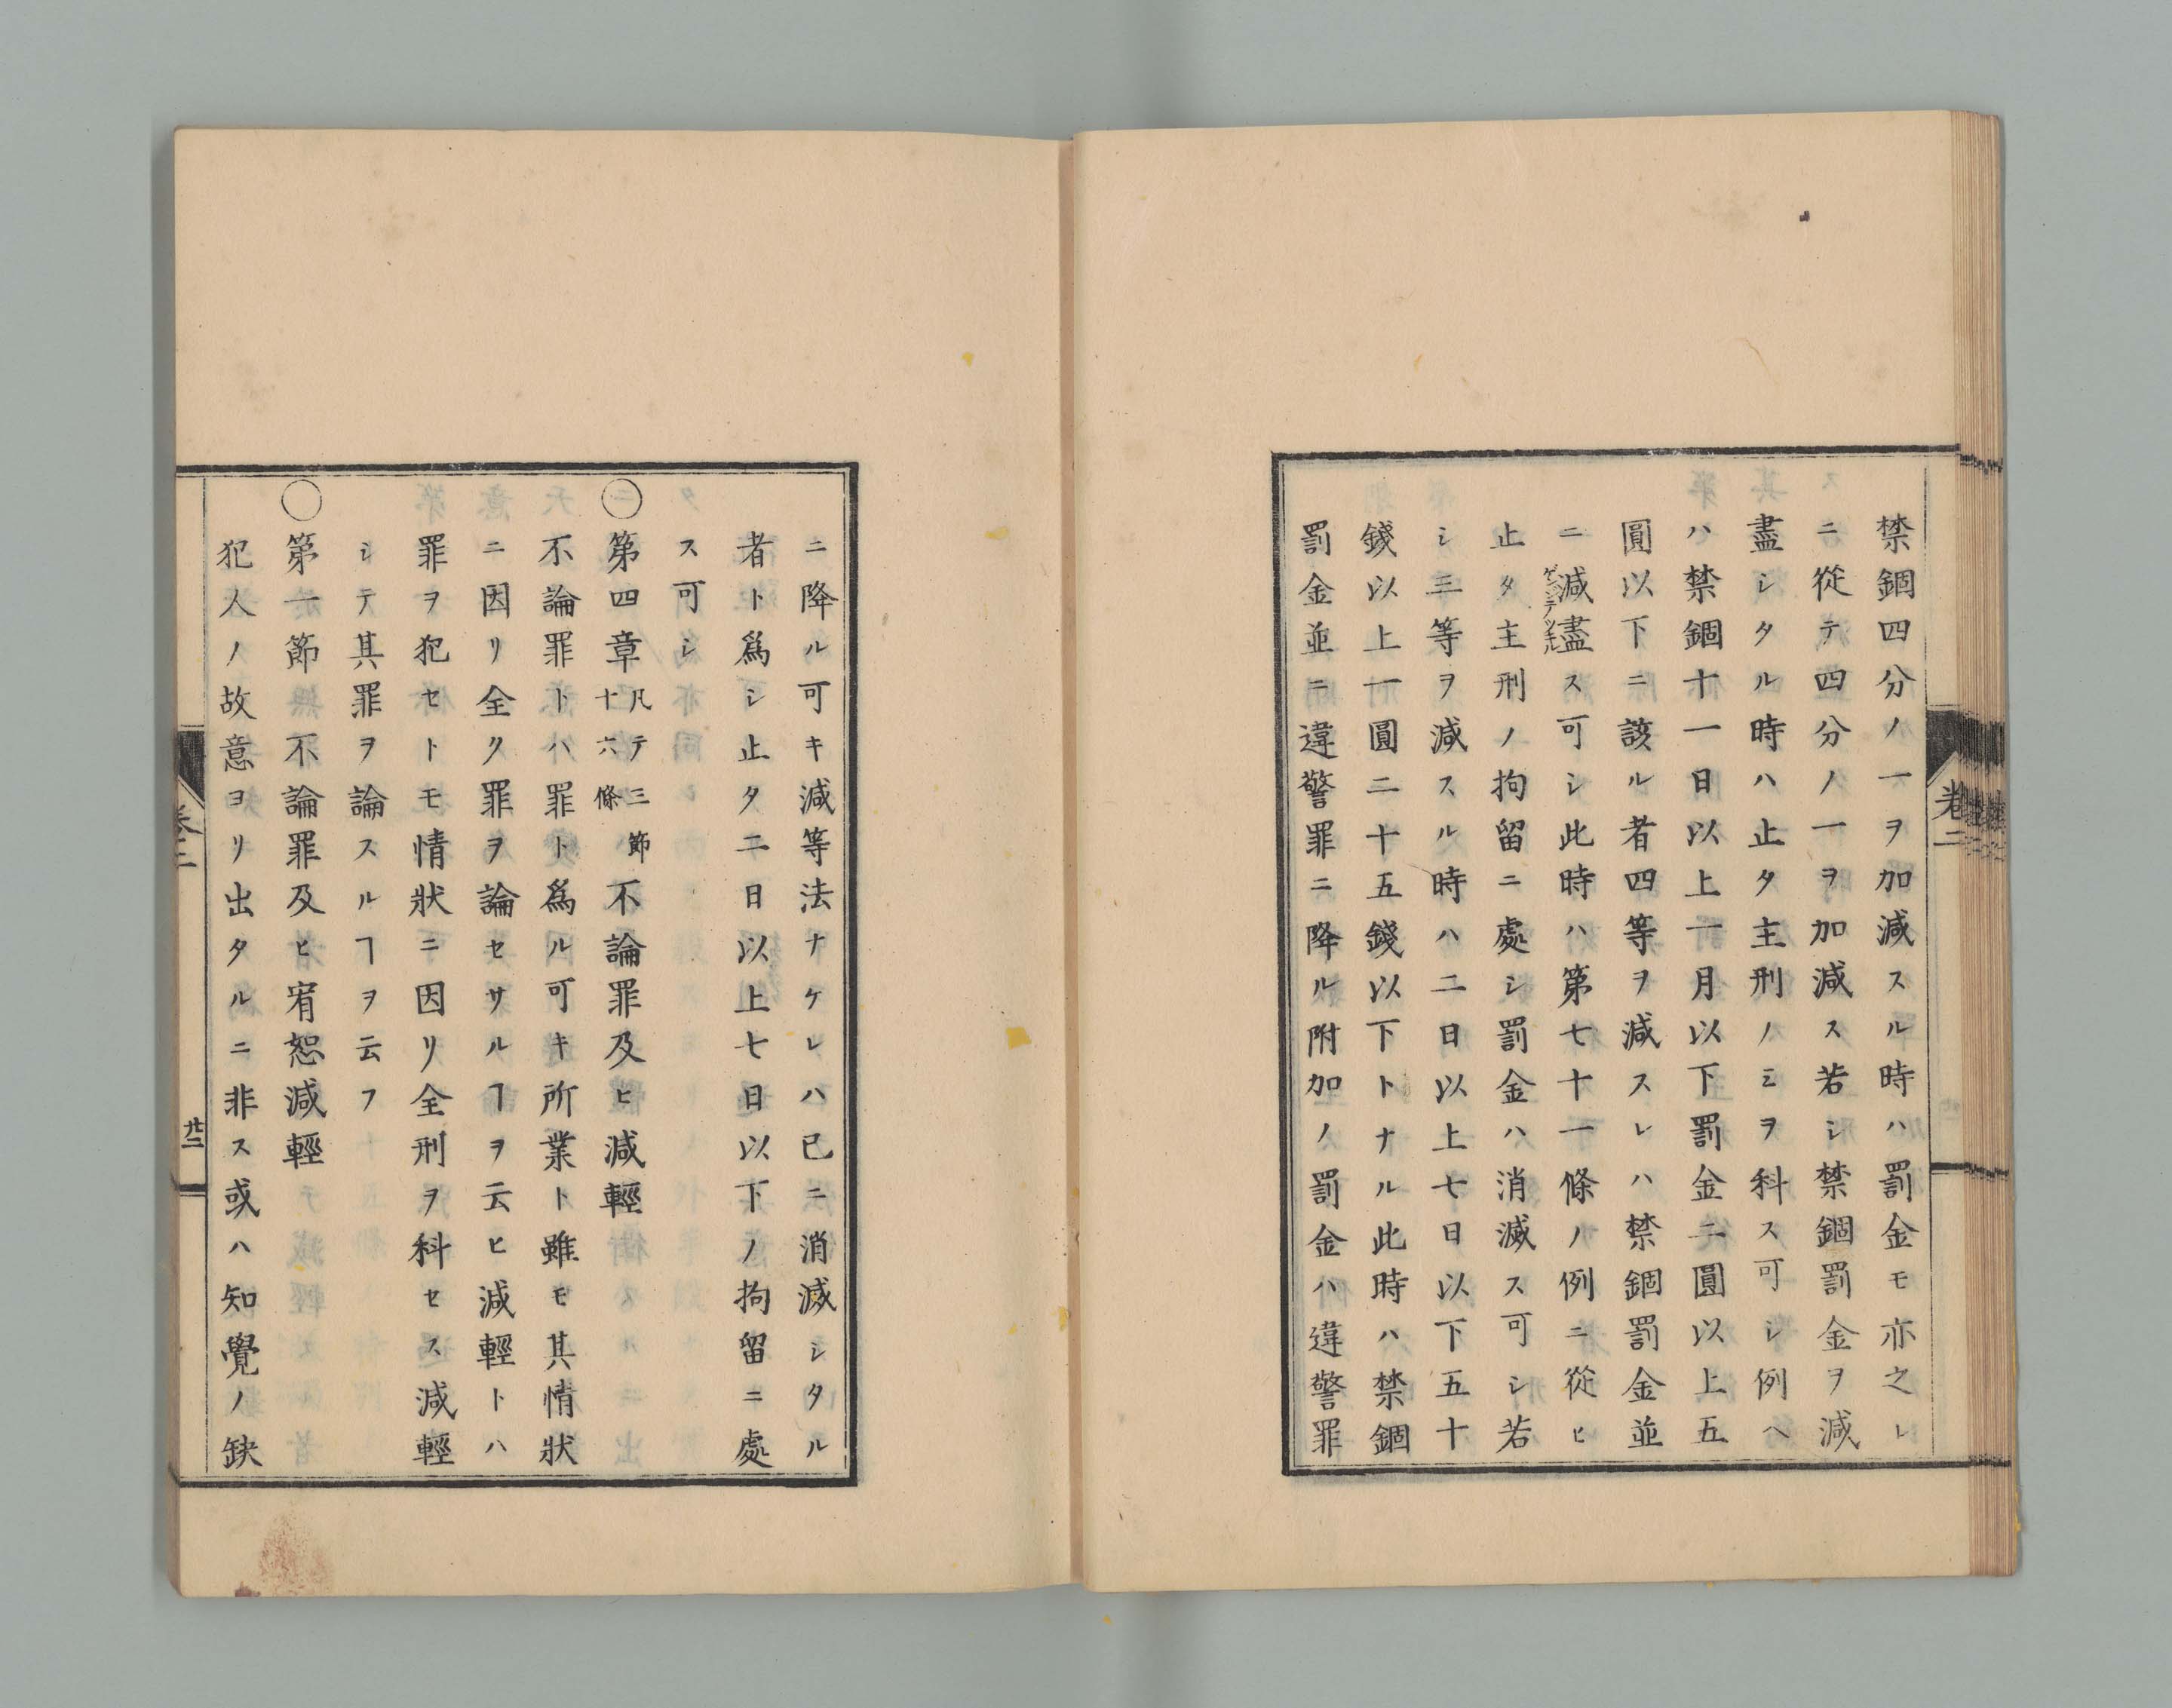 禁錮四分ノ一ヲ加減スル時ハ罰金モ亦之レ
ニ從テ四分ノ一ヲ加減ス若シ禁錮罰金ヲ減
盡シタル時ハ止タ主刑ノミヲ科ス可シ例ヘ
ハ禁錮十一日以上一月以下罰金二圓以上五
圓以下ニ該ル者四等ヲ減スレハ禁錮罰金並
ニ減盡ス可シ此時ハ第七十一條ノ例ニ從ヒ
止タ主刑ノ拘留ニ處シ罰金ハ消滅ス可シ若
シ三等ヲ減スル時ハ二日以上七日以下五十
錢以上一圓二十五錢以下トナル此時ハ禁錮
罰金並ニ違警罪ニ降ル附加ノ罰金ハ違警罪
卷二
ニ降ル可キ減等法ナケレハ已ニ消滅シタル
者ト爲シ止タ二日以上七日以下ノ拘留ニ處
ス可シ
○第四章凡テ三節十六條不論罪及ヒ減輕
不論罪トハ罪ト爲ル可キ所業ト雖モ其情狀
ニ因リ全ク罪ヲ論セサルヿヲ云ヒ減輕トハ
罪ヲ犯セトモ情狀ニ因リ全刑ヲ科セス減輕
シテ其罪ヲ論スルヿヲ云フ
○第一節不論罪及ヒ宥恕減輕
犯人ノ故意ヨリ出タルニ非ス或ハ知覺ノ缺
卷二
廿二